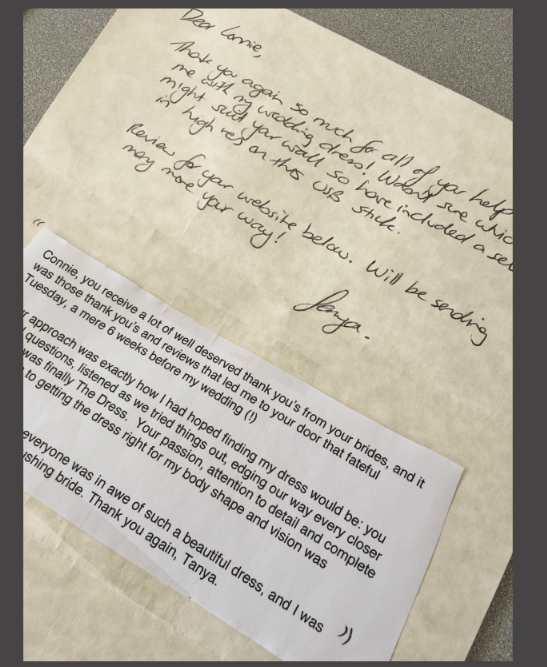 Dear Connie,
Thank you again so much for all of you help
me with my wedding dress! Wasn't sure whic
might suit your wall so have included a sel
in high res on this USB stick.
Review for your website below. Will be sending
many more your way!
Tanya.
"
Connie, you receive a lot of well deserved thank you's from your brides, and it
was those thank you's and reviews that led me to your door that fateful
Tuesday, a mere 6 weeks before my wedding (!)
r approach was exactly how I had hoped finding my dress would be: you
questions, listened as we tried things out, edging our way every closer
was finally The Dress. Your passion, attention to detail and complete
to getting the dress right for my body shape and vision was
everyone was in awe of such a beautiful dress, and I was
shing bride. Thank you again, Tanya.
"